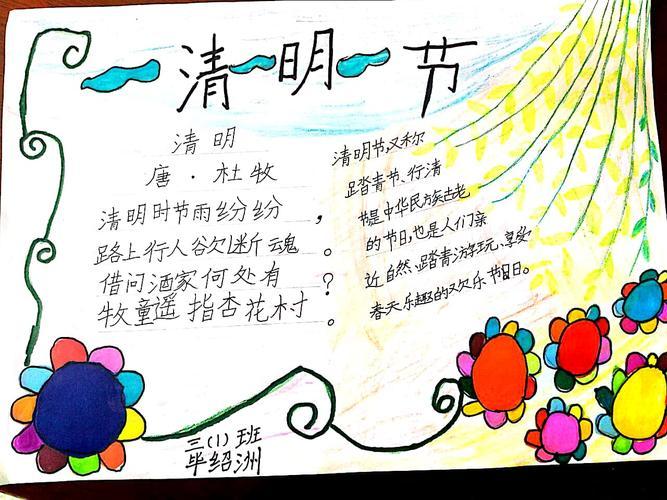 清明节
清明
唐·杜牧
清明时节雨纷纷，
路上行人欲断魂。
借问酒家何处有？
牧童遥指杏花村。
清明节,又称
踏青节、行清
节是中华民族古老
的节日,也是人们亲
近自然、踏青游玩、享受
春天乐趣的欢乐节日。
三(1)班
毕绍洲